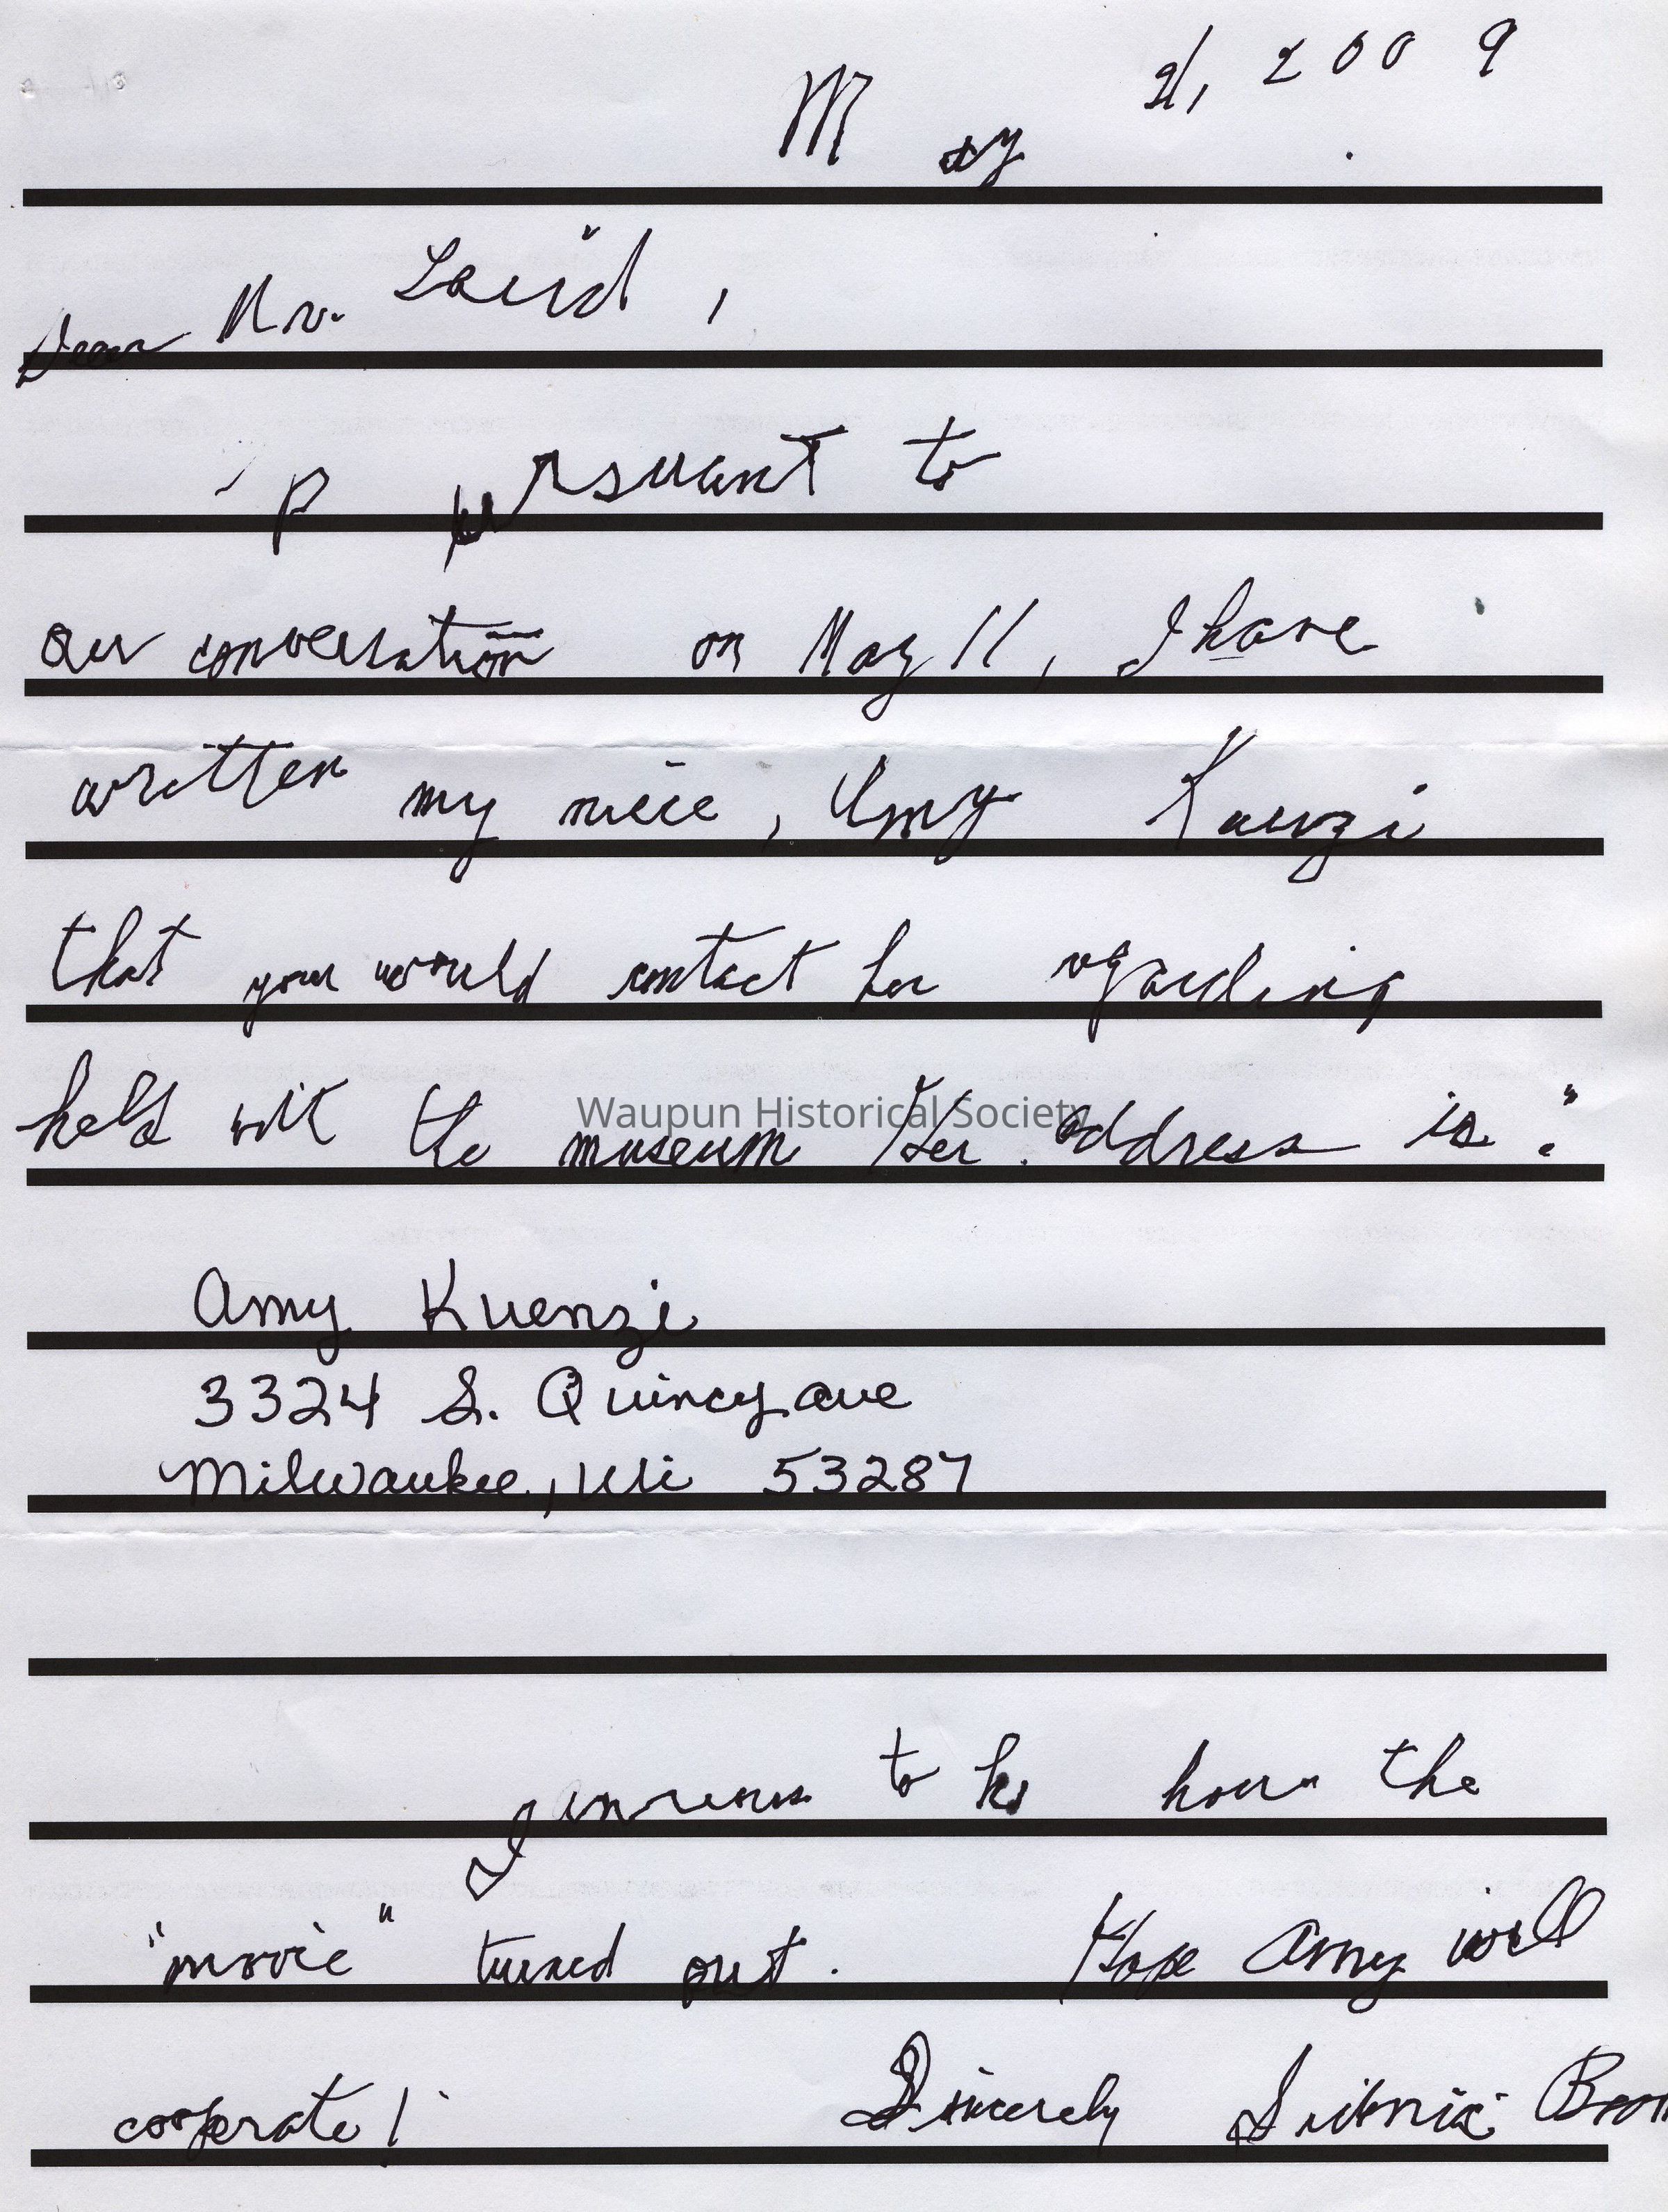 May 21, 2009
Dear Mr. Laird,
p pursuant to
our conversation on May 11, I have
written my niece, Amy Kuenzi
that you would contact her regarding
held with the museum Her address is:
Waupun Historical Society
Amy Kuenzi
3324 S. Quincy ave
Milwaukee, Wi 53287
I to how the
"movie" turned out. Hope Amy will
cooperate! Sincerely